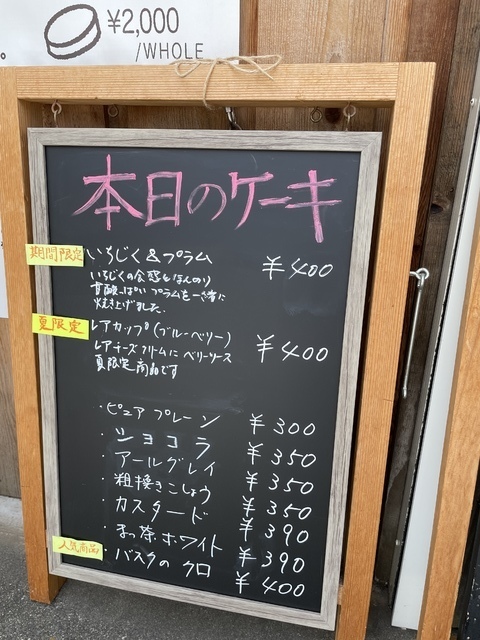 ¥2,000
/WHOLE
本日のケーキ
期間限定 いちじく&プラム ¥400
いちじくの食感とほんのり
甘酸っぱいプラムを一緒に
焼き上げました。
夏限定 レアカップ(ブルーベリー) ¥400
レアチーズクリームにベリーソース
夏限定商品です
・ピュアプレーン ¥300
・ショコラ ¥350
・アールグレイ ¥350
・粗挽きこしょう ¥350
・カスタード ¥390
・まっ茶ホワイト ¥390
人気商品 バスクのクロ ¥400